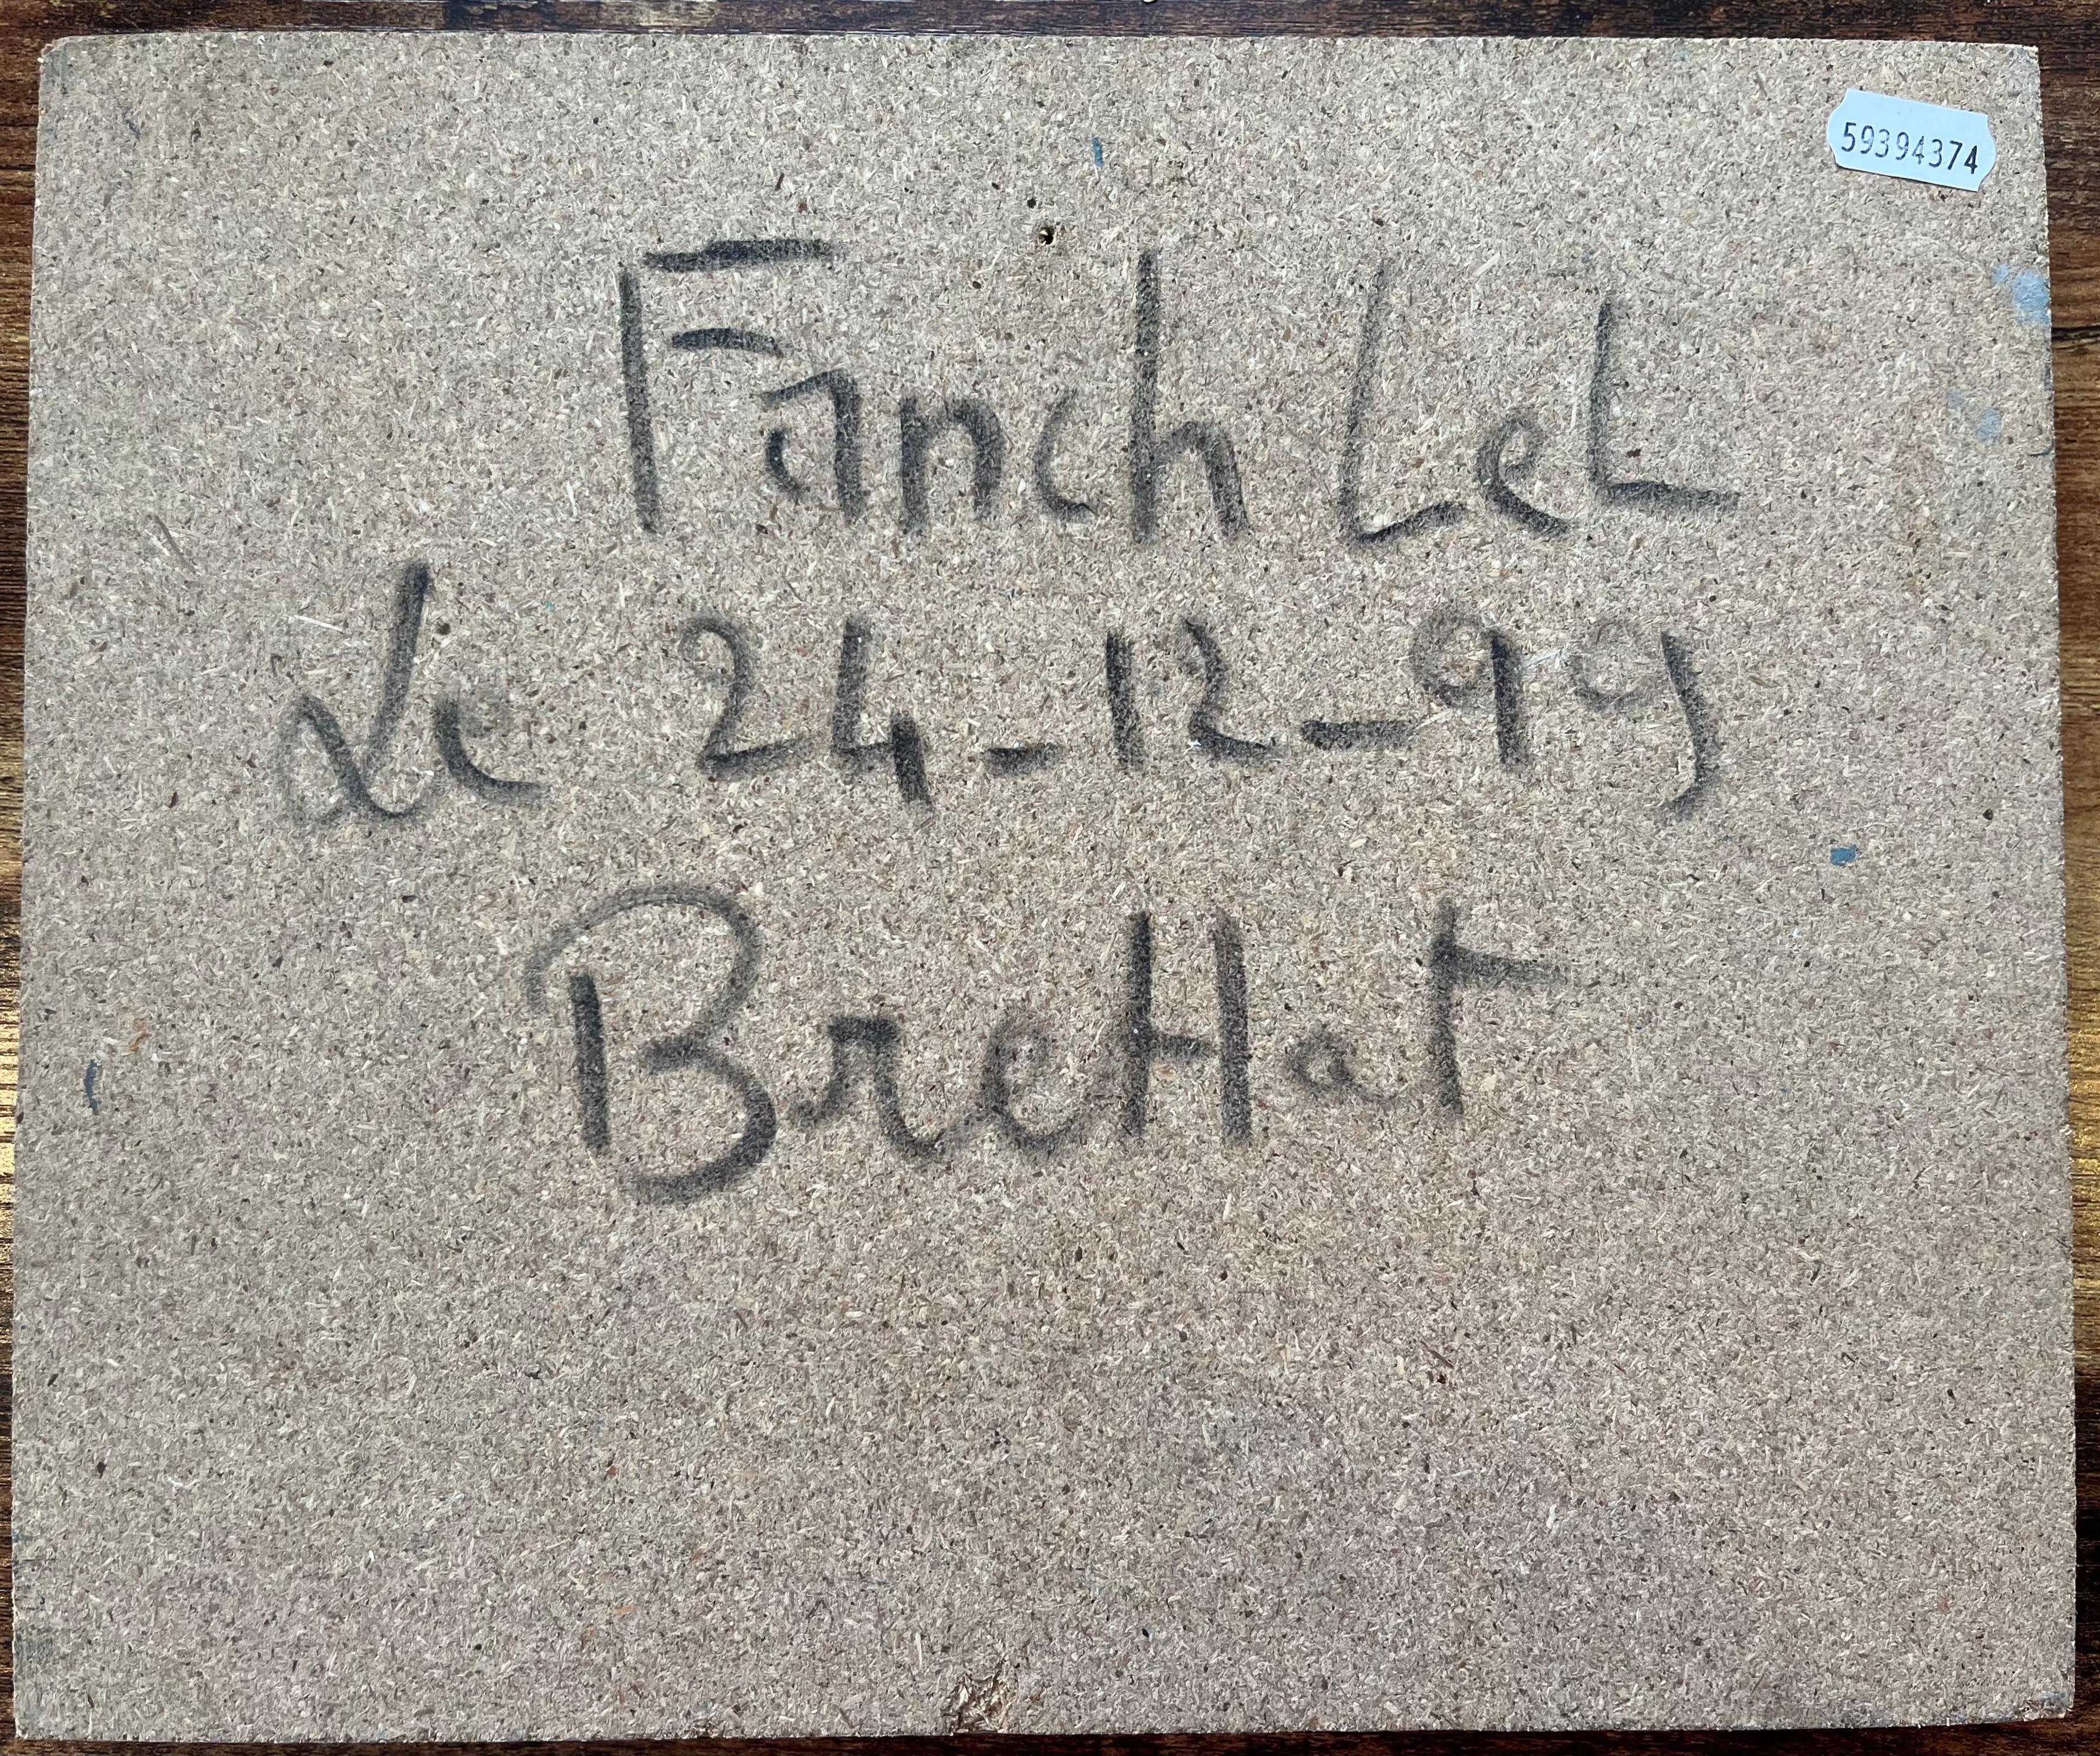 59394374
Fanch LeL
Le 24-12-99
BreHat